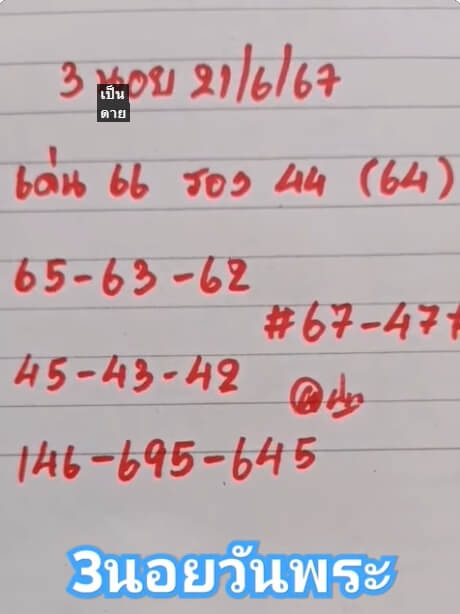 3 นอย 21/6/67
เป็น
ดาย
เด่น 66 รอง 44 (64)
65-63-62
#67-47+
45-43-42
146-695-645
3นอยวันพระ